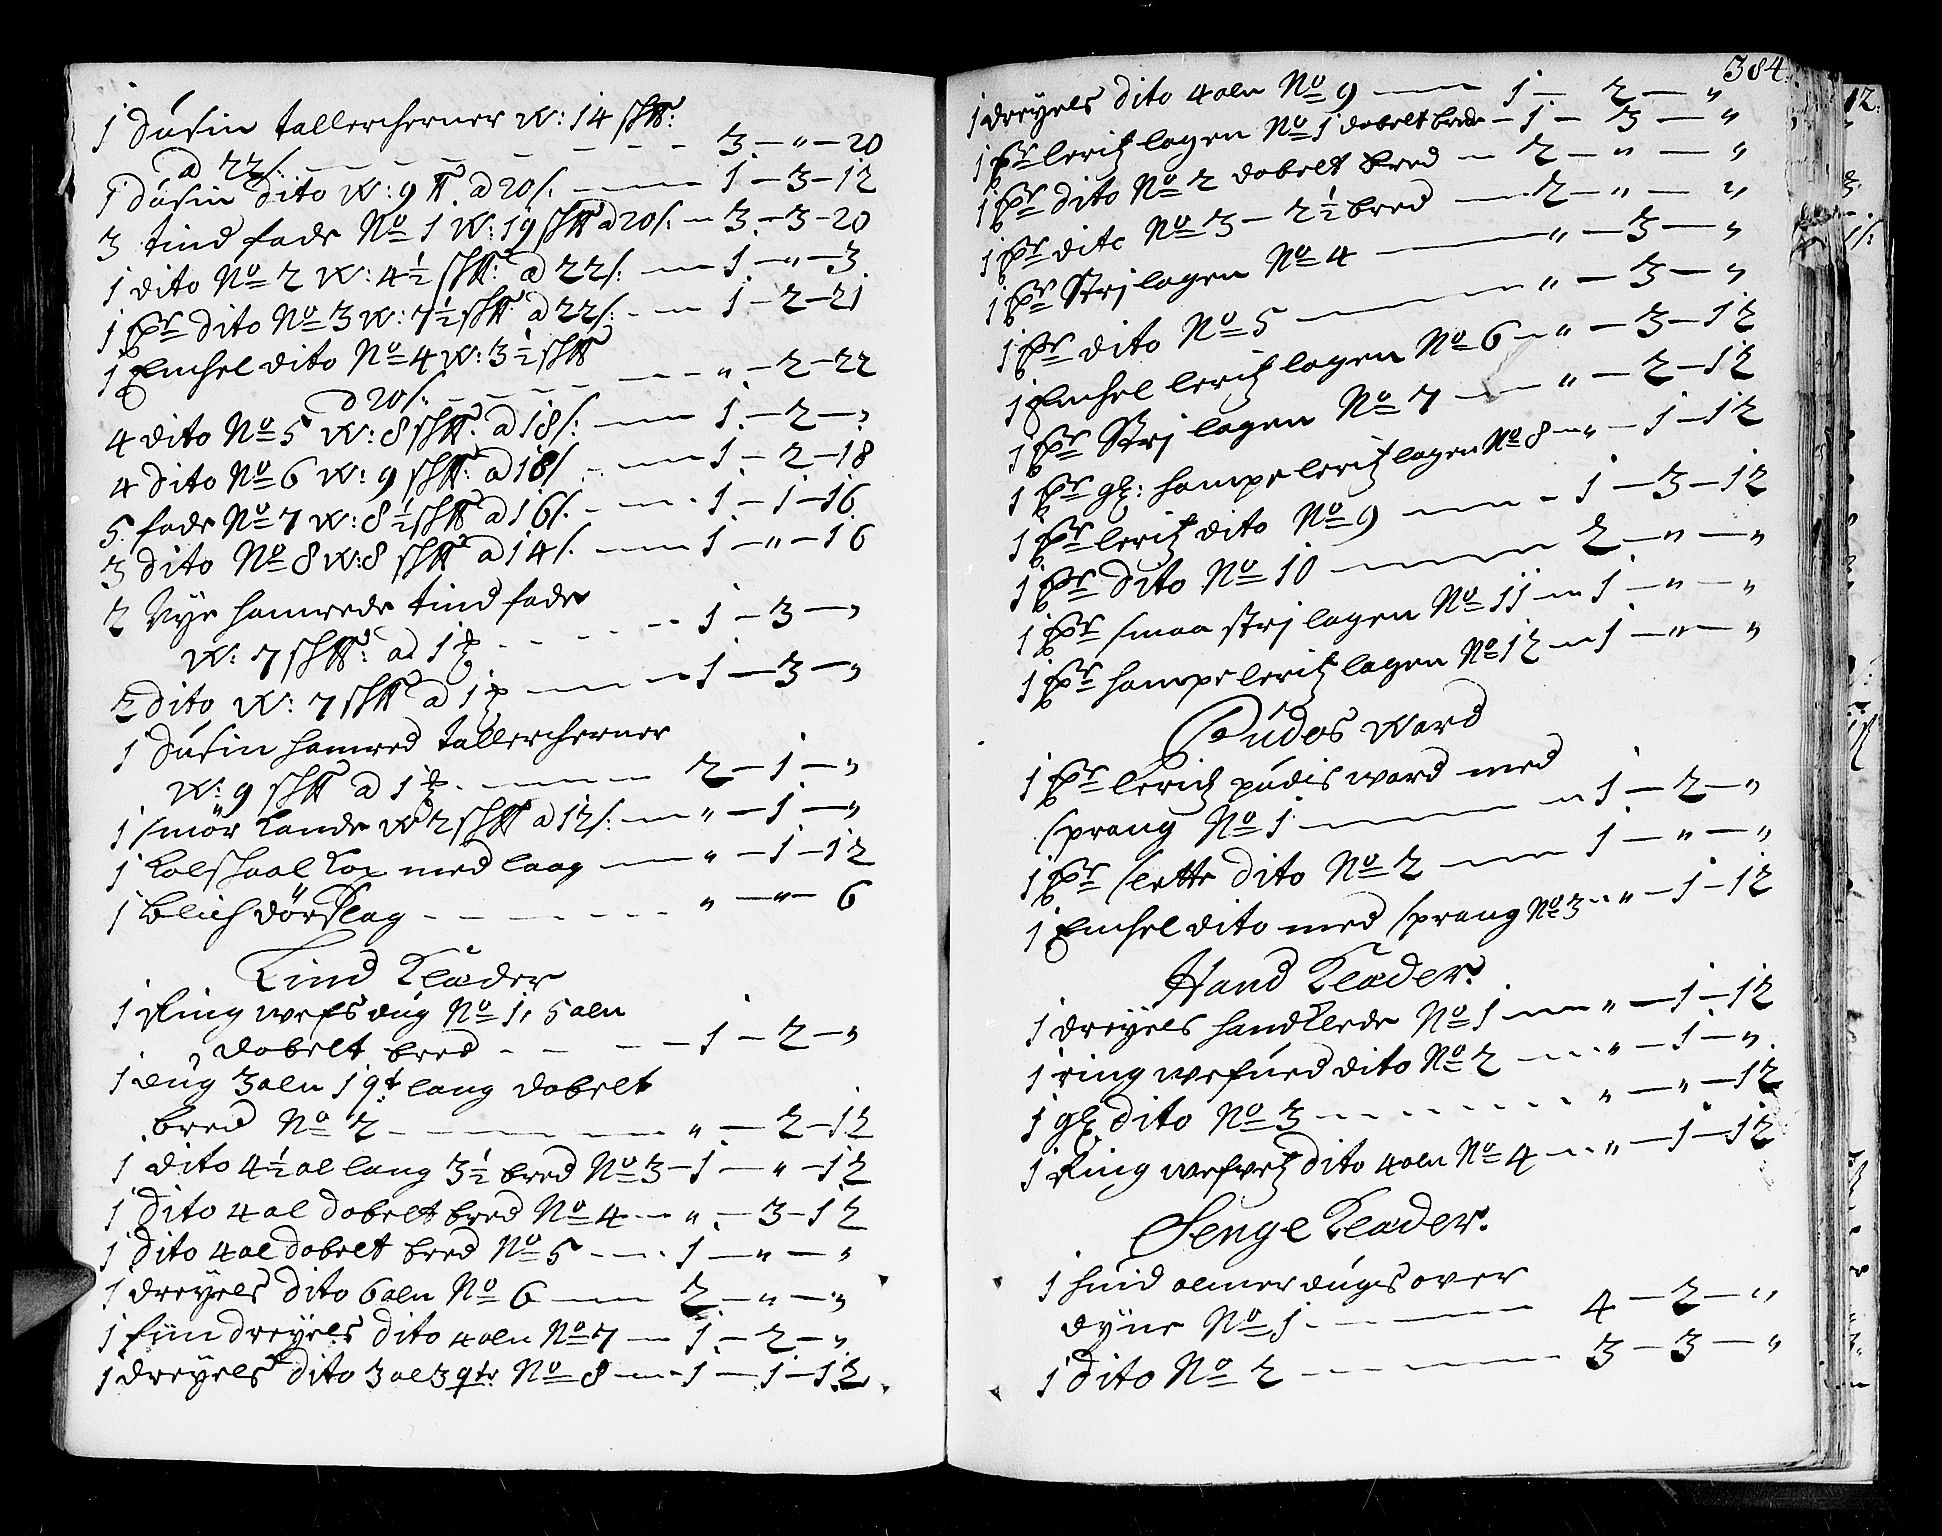 1 Dusin tallercherner W: 14 sh℔:
a 22/: - - - - - - 3 - " - 20
1 Dusin dito W: 9 ℔. a 20/. - 1 - 3 - 12
3 tind fade No 1 W: 19 sh℔ a 20/: - 3 - 3 - 20
1 dito No 2 W: 4½ sh℔: a 22/: - 1 - " - 3
1 Pr dito No 3 W: 7½ sh℔: a 22/: - 1 - 2 - 21
1 Enchel dito No 4 W: 3½ sh℔
a 20/: - - - - " - 2 - 22
4 dito No 5 W: 8 sh℔: a 18/: - 1 - 2 - "
4 dito No 6 W: 9 sh℔: a 18/. - 1 - 2 - 18
5 fade No 7 W: 8½ sh℔ a 16/. - 1 - 1 - 16
3 dito No 8 W: 8 sh℔ a 14/. - 1 - " - 16
2 Nye hamrede tind fade
W: 7 sh℔: ad 1 - - - - 1 - 3 - "
2 dito W: 7 sh℔ a 1 - 1 - 3 - "
1 Dusin hamred tallercherner
W: 9 sh℔ a 1 - 2 - 1 - "
1 smör kande W 2 sh℔ a 12/: - " - 1 - "
1 kolschaal kop med laag - " - 1 - 12
1 blich dörslag - - - - " - " - 6
Lind Klæder
1 Ring wefs dug No 1, 5 aln
dobelt bred - - - 1 - 2 - "
1 dug 3 aln 1 qt lang dobelt
bred No 2 - " - 2 - 12
1 dito 4½ al lang 3½ bred No 3 - 1 - " - 12
1 Dito 4 al dobelt bred No 4 - " - 3 - 12
1 dito 4 al dobelt bred No 5 - 1 - " - "
1 dreyels dito 6 aln No 6 - 2 - " - "
1 fiin dreyels dito 4 aln No 7 - 1 - 2 - "
1 dreyels dito 3 al 3 qtr No 8 - 1 - 1 - 12
384.
1 dreyels dito 4 aln No 9 - 1 - 2 - "
1 Pr leritz lagen No 1 dobelt brede - 1 - 3 - "
1 Pr dito No 2 dobelt bred - 2 - " - "
1 Pr dito No 3 - 2½ bred - 2 - " - "
1 Pr Strj lagen No 4 - " - 3 - "
1 Pr dito No 5 - " - 3 - "
1 Enchel leritz lagen No 6 - " - 3 - 12
1 Pr Strj lagen No 7 - " - 2 - 12
1 Pr gl: hampe leritz lagen No 8 - " - 1 - 12
1 Pr leritz dito No 9 - 1 - 3 - 12
1 Pr dito No 10 - 2 - " - "
1 Pr smaa strj lagen No 11 - 1 - " - "
1 Pr hampe leritz lagen No 12 - 1 - " - "
Pudes ward
1 Pr leritz pudis ward med
sprang No 1 - 1 - 2 - "
1 Pr slette dito No 2 - 1 - " - "
1 Enchel dito med sprang No 3 - " - 1 - 12
Hand Klæder.
1 dreyels handklede No 1 - " - 1 - 12
1 ring wefued dito No 2 - " - 1 - "
1 gl dito No 3 - - - " - " - 12
1 Ring wefvetz dito 4 aln No 4 - " - 1 - 12
Senge Klæder.
1 huid olmerdugs over
dyne No 1 - 4 - 2 - "
1 dito No 2 - 3 - 3 - "